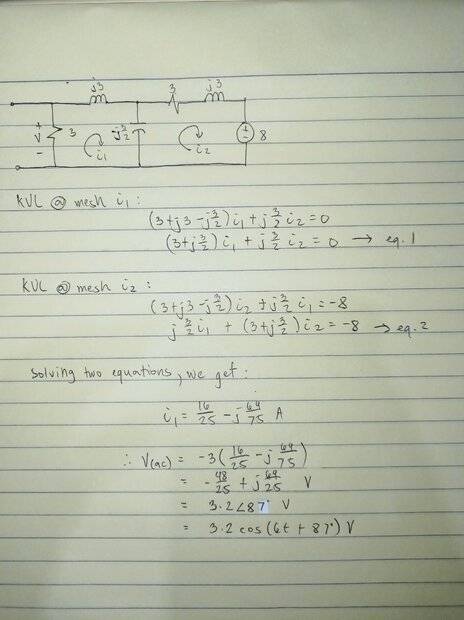 j3 3 j3
+ V - 3 -j3/2 i₁ i₂ + - 8
KVL @ mesh i₁ :
(3+j3-j3/2)i₁+j3/2 i₂=0
(3+j3/2)i₁+j3/2 i₂=0 → eq.1
KVL @ mesh i₂ :
(3+j3-j3/2)i₂+j3/2 i₁=-8
j3/2 i₁ + (3+j3/2)i₂=-8 → eq.2
Solving two equations, we get :
i₁ = 16/25 - j64/75 A
∴ V(ac) = -3(16/25 - j64/75)
= -48/25 + j64/25 V
= 3.2∠87° V
= 3.2 cos(6t + 87°) V